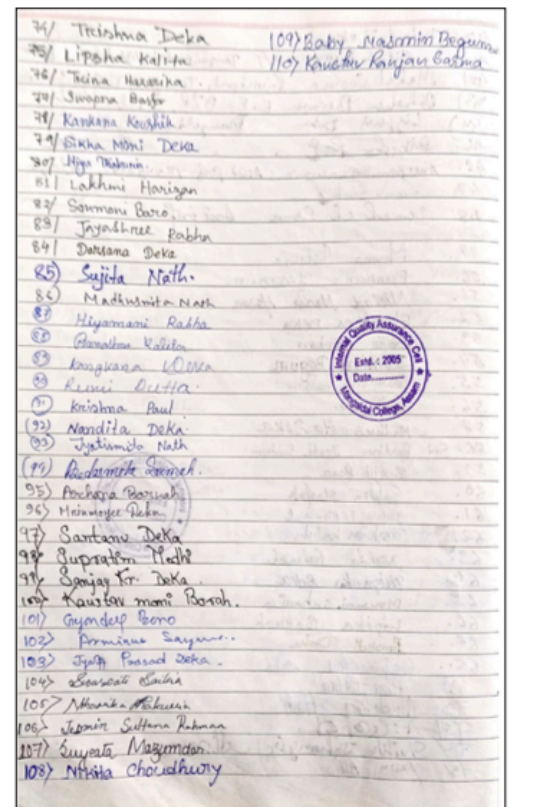 74/ Trishna Deka
75/ Lipsha Kalita
76/ Trina Hazarika
77/ Swapna
78/ Kankana Koushik
79/ Sikha Moni Deka
80/
81/ Lakhmi Harizan
82/ Sonmoni Baro.
83/ Jayashree Rabha
84/ Darsana Deka
85) Sujita Nath.
86) Madhusmita Nath
87 Hiyamani Rabha
88 Kalita
89 Kangkana Deka
90 Rumi Dutta.
91 Krishma Paul
(92) Nandita Deka
(93) Jyotismita Nath
(94)
95) Archana Baruah
96) Deka
97) Santanu Deka
98) Supratim Medhi
99) Sanjay Kr. Deka.
100) Kaustav moni Borah.
101) Gyandeep Boro
102)
103) Prasad Deka.
104) Saikia
105)
106) Jesmin Sultana Rahman
107) Sujeata Mazumdar
108) Nikita Choudhury
109) Baby Masmin Begum
110) Kaustuv Ranjan Sarma
Internal Quality Assurance Cell
Estd. : 2005
Date
Mangaldai College, Assam